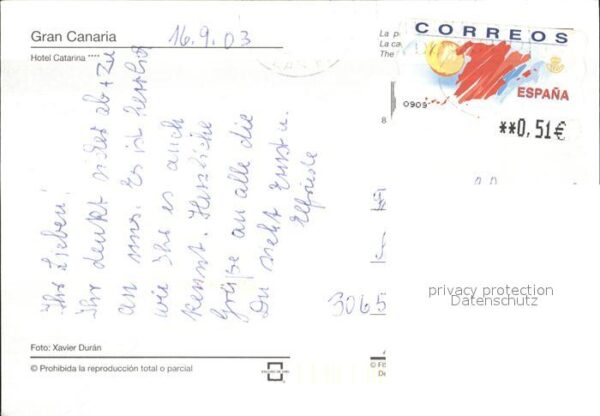 Gran Canaria
Hotel Catarina ****
16.9.03
Ihr Lieben!
Ihr denkt sicher ab + zu
an uns. Es ist herrlich
wie Ihr es auch
kennt. Herzliche
Grüße an alle die
Du siehst Ernst u.
Elfriede
Foto: Xavier Durán
© Prohibida la reproducción total o parcial
La p
La ca
The
8
CORREOS
ESPAÑA
0909
**0,51€
3065
privacy protection
Datenschutz
© Fi
De